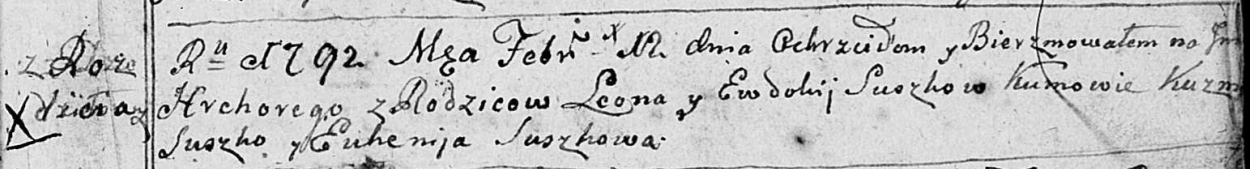 z Roz
Ru 1792 Mca Febr 12 dnia Ochrzciłem y Bierzmowałem na Im
Hrehorego z Rodzicow Leona y Ewdokij Suszkow Kumowie Kuzm
Suszko y Euhenija Suszkowa